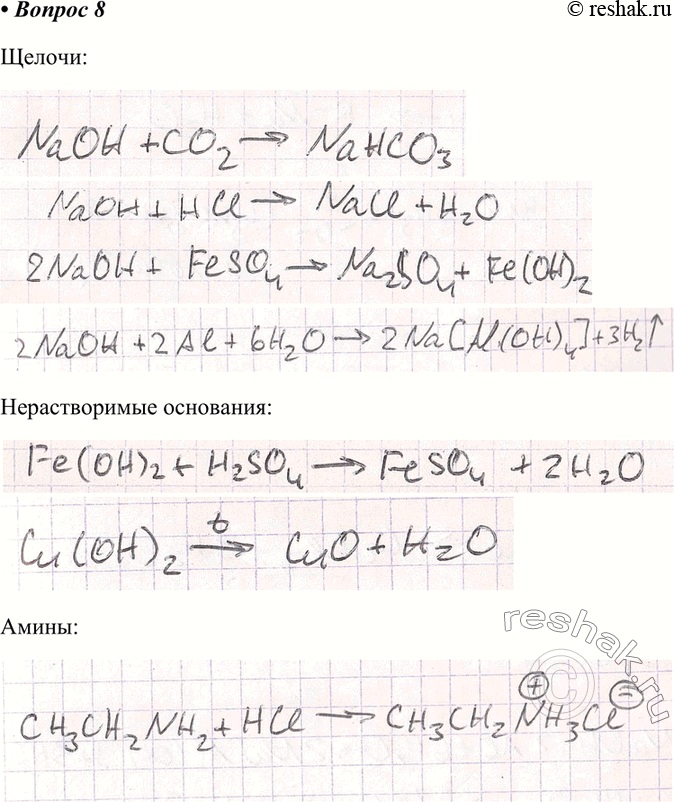 • Вопрос 8
© reshak.ru
Щелочи:
NaOH + CO₂ → NaHCO₃
NaOH + HCl → NaCl + H₂O
2NaOH + FeSO₄ → Na₂SO₄ + Fe(OH)₂
2NaOH + 2Al + 6H₂O → 2Na[Al(OH)₄] + 3H₂↑
Нерастворимые основания:
Fe(OH)₂ + H₂SO₄ → FeSO₄ + 2H₂O
t
Cu(OH)₂ → CuO + H₂O
Амины:
reshak.ru
©
⊕ ⊖
CH₃CH₂NH₂ + HCl → CH₃CH₂NH₃Cl